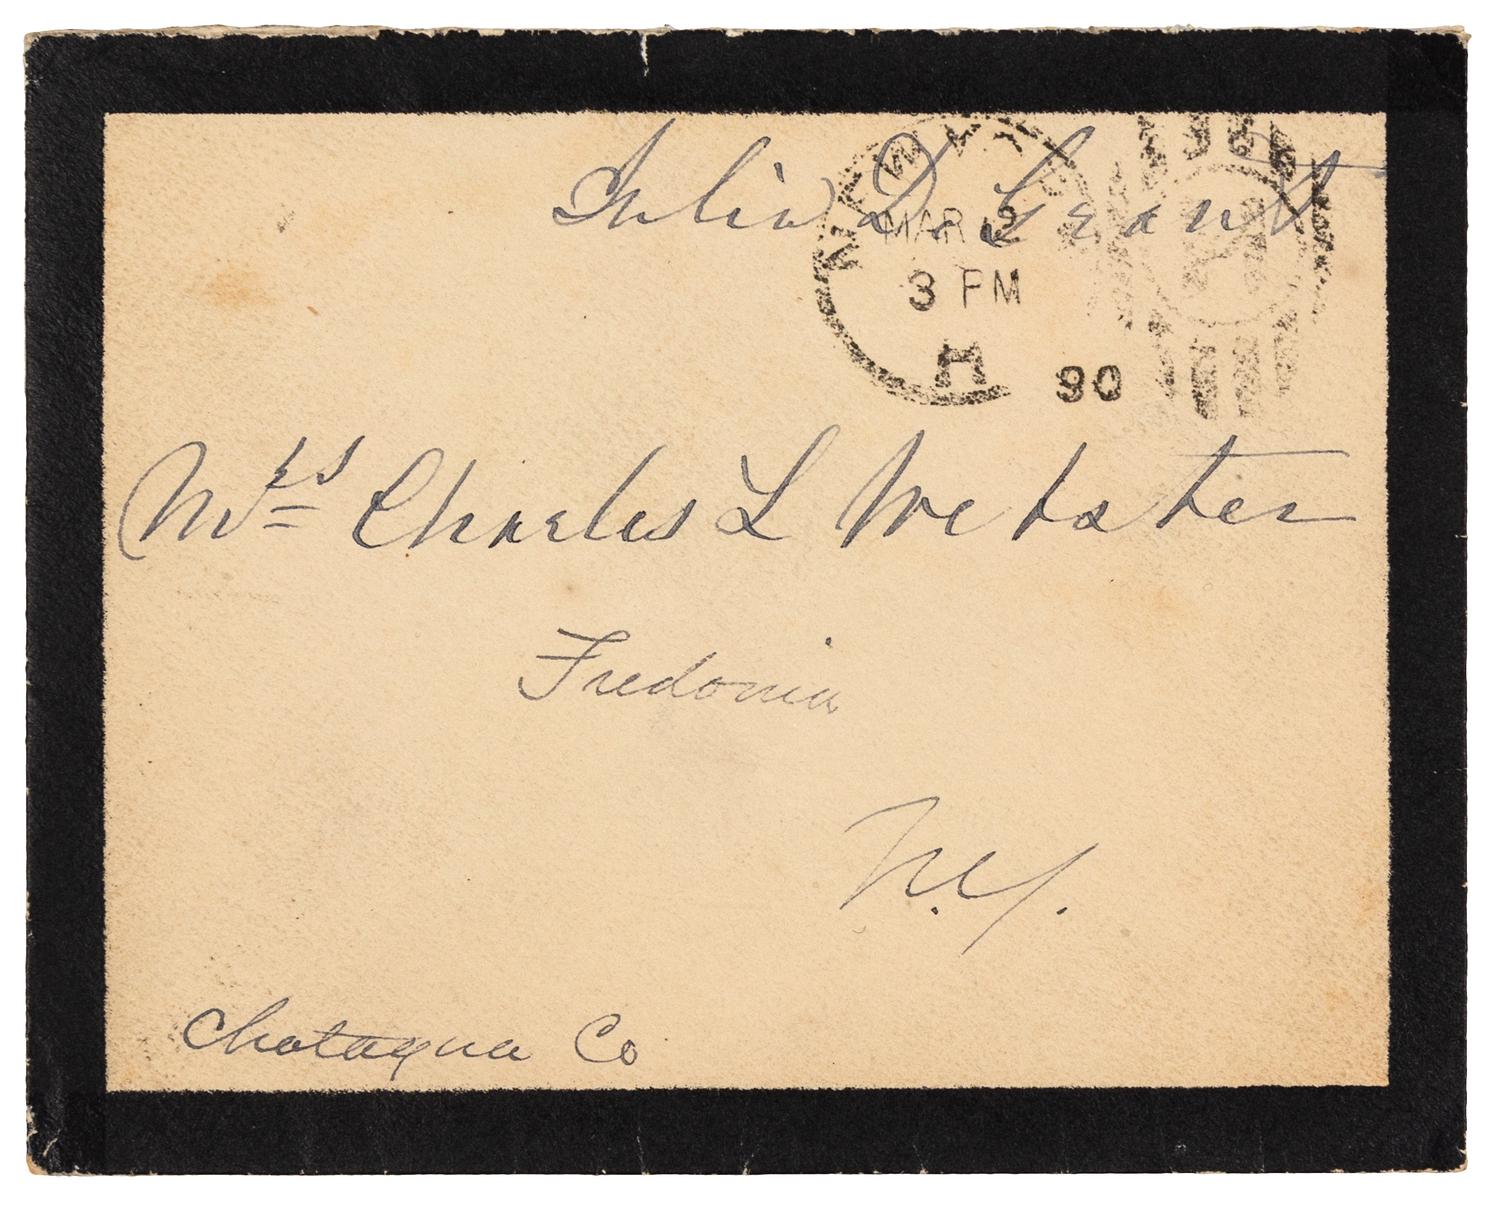 Julia D. Grant
NEW YORK
MAR 12
3 PM
H
90
H
Mrs Charles L Webster
Fredonia
N.Y.
Chataqua Co